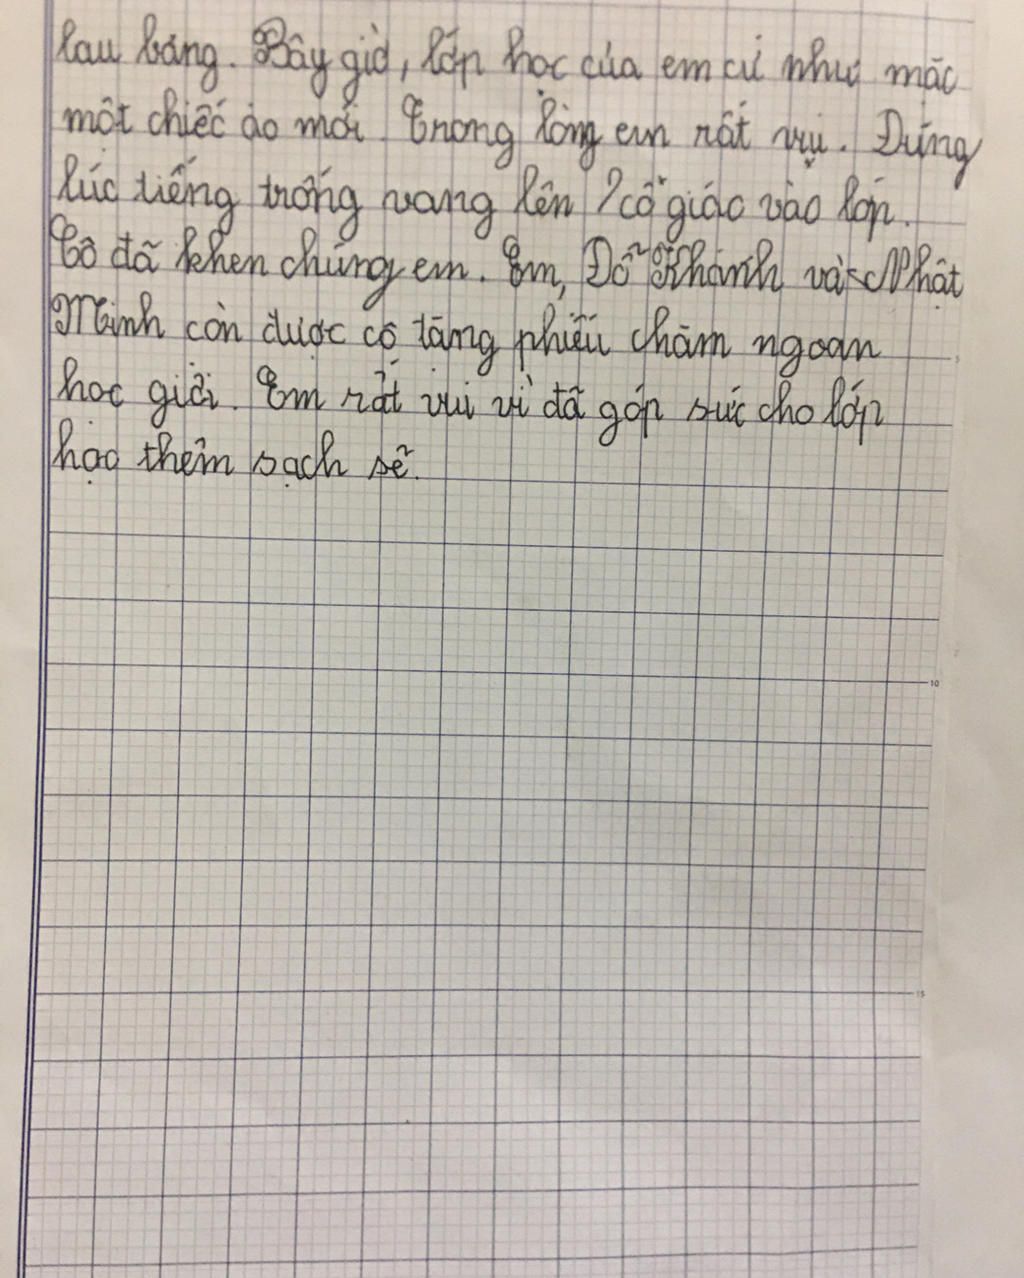 lau bảng. Bây giờ, lớp học của em cứ như mặc
một chiếc áo mới. Trong lòng em rất vui. Đúng
lúc tiếng trống vang lên, cô giáo vào lớp.
Cô đã khen chúng em. Em, Đỗ Khánh và Nhật
Minh còn được cô tặng phiếu chăm ngoan
học giỏi. Em rất vui vì đã góp sức cho lớp
học thêm sạch sẽ.
5
10
15